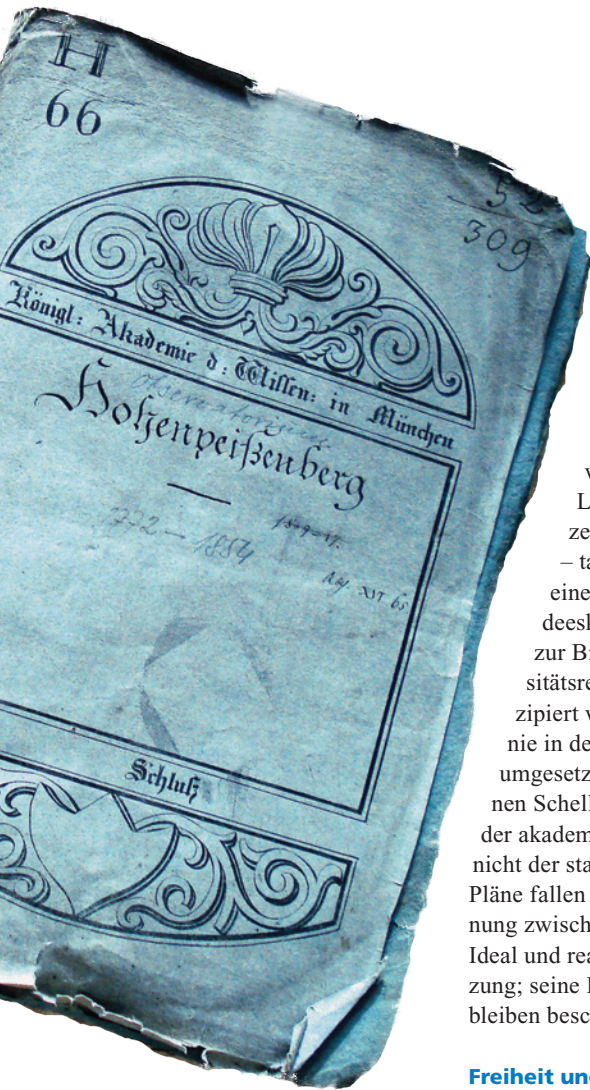 H
66
309
Königl: Akademie d: Wissen: in München
Observatorium
Hohenpeißenberg
1772 – 1854
Schluß
eine
zur Bi
sitätsre
zipiert w
nie in de
umgesetz
nen Schell
der akadem
nicht der sta
Pläne fallen
nung zwisch
Ideal und rea
zung; seine
bleiben besc
Freiheit un